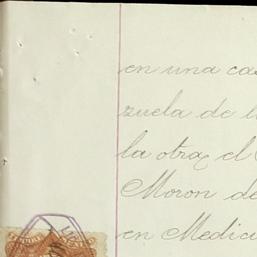 en una cas
zuela de l
la otra, el
Moron de
en Medici